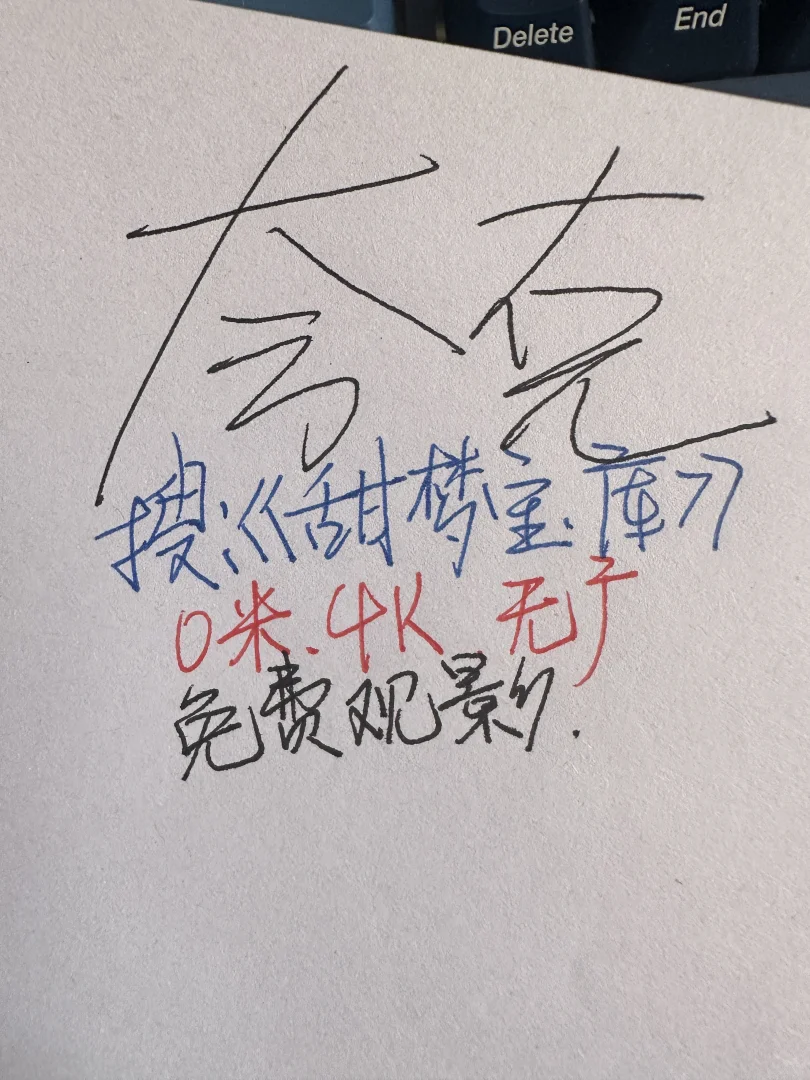 Delete End
夸克
搜:《甜梦宝库》
0米.4K 无广
免费观影.